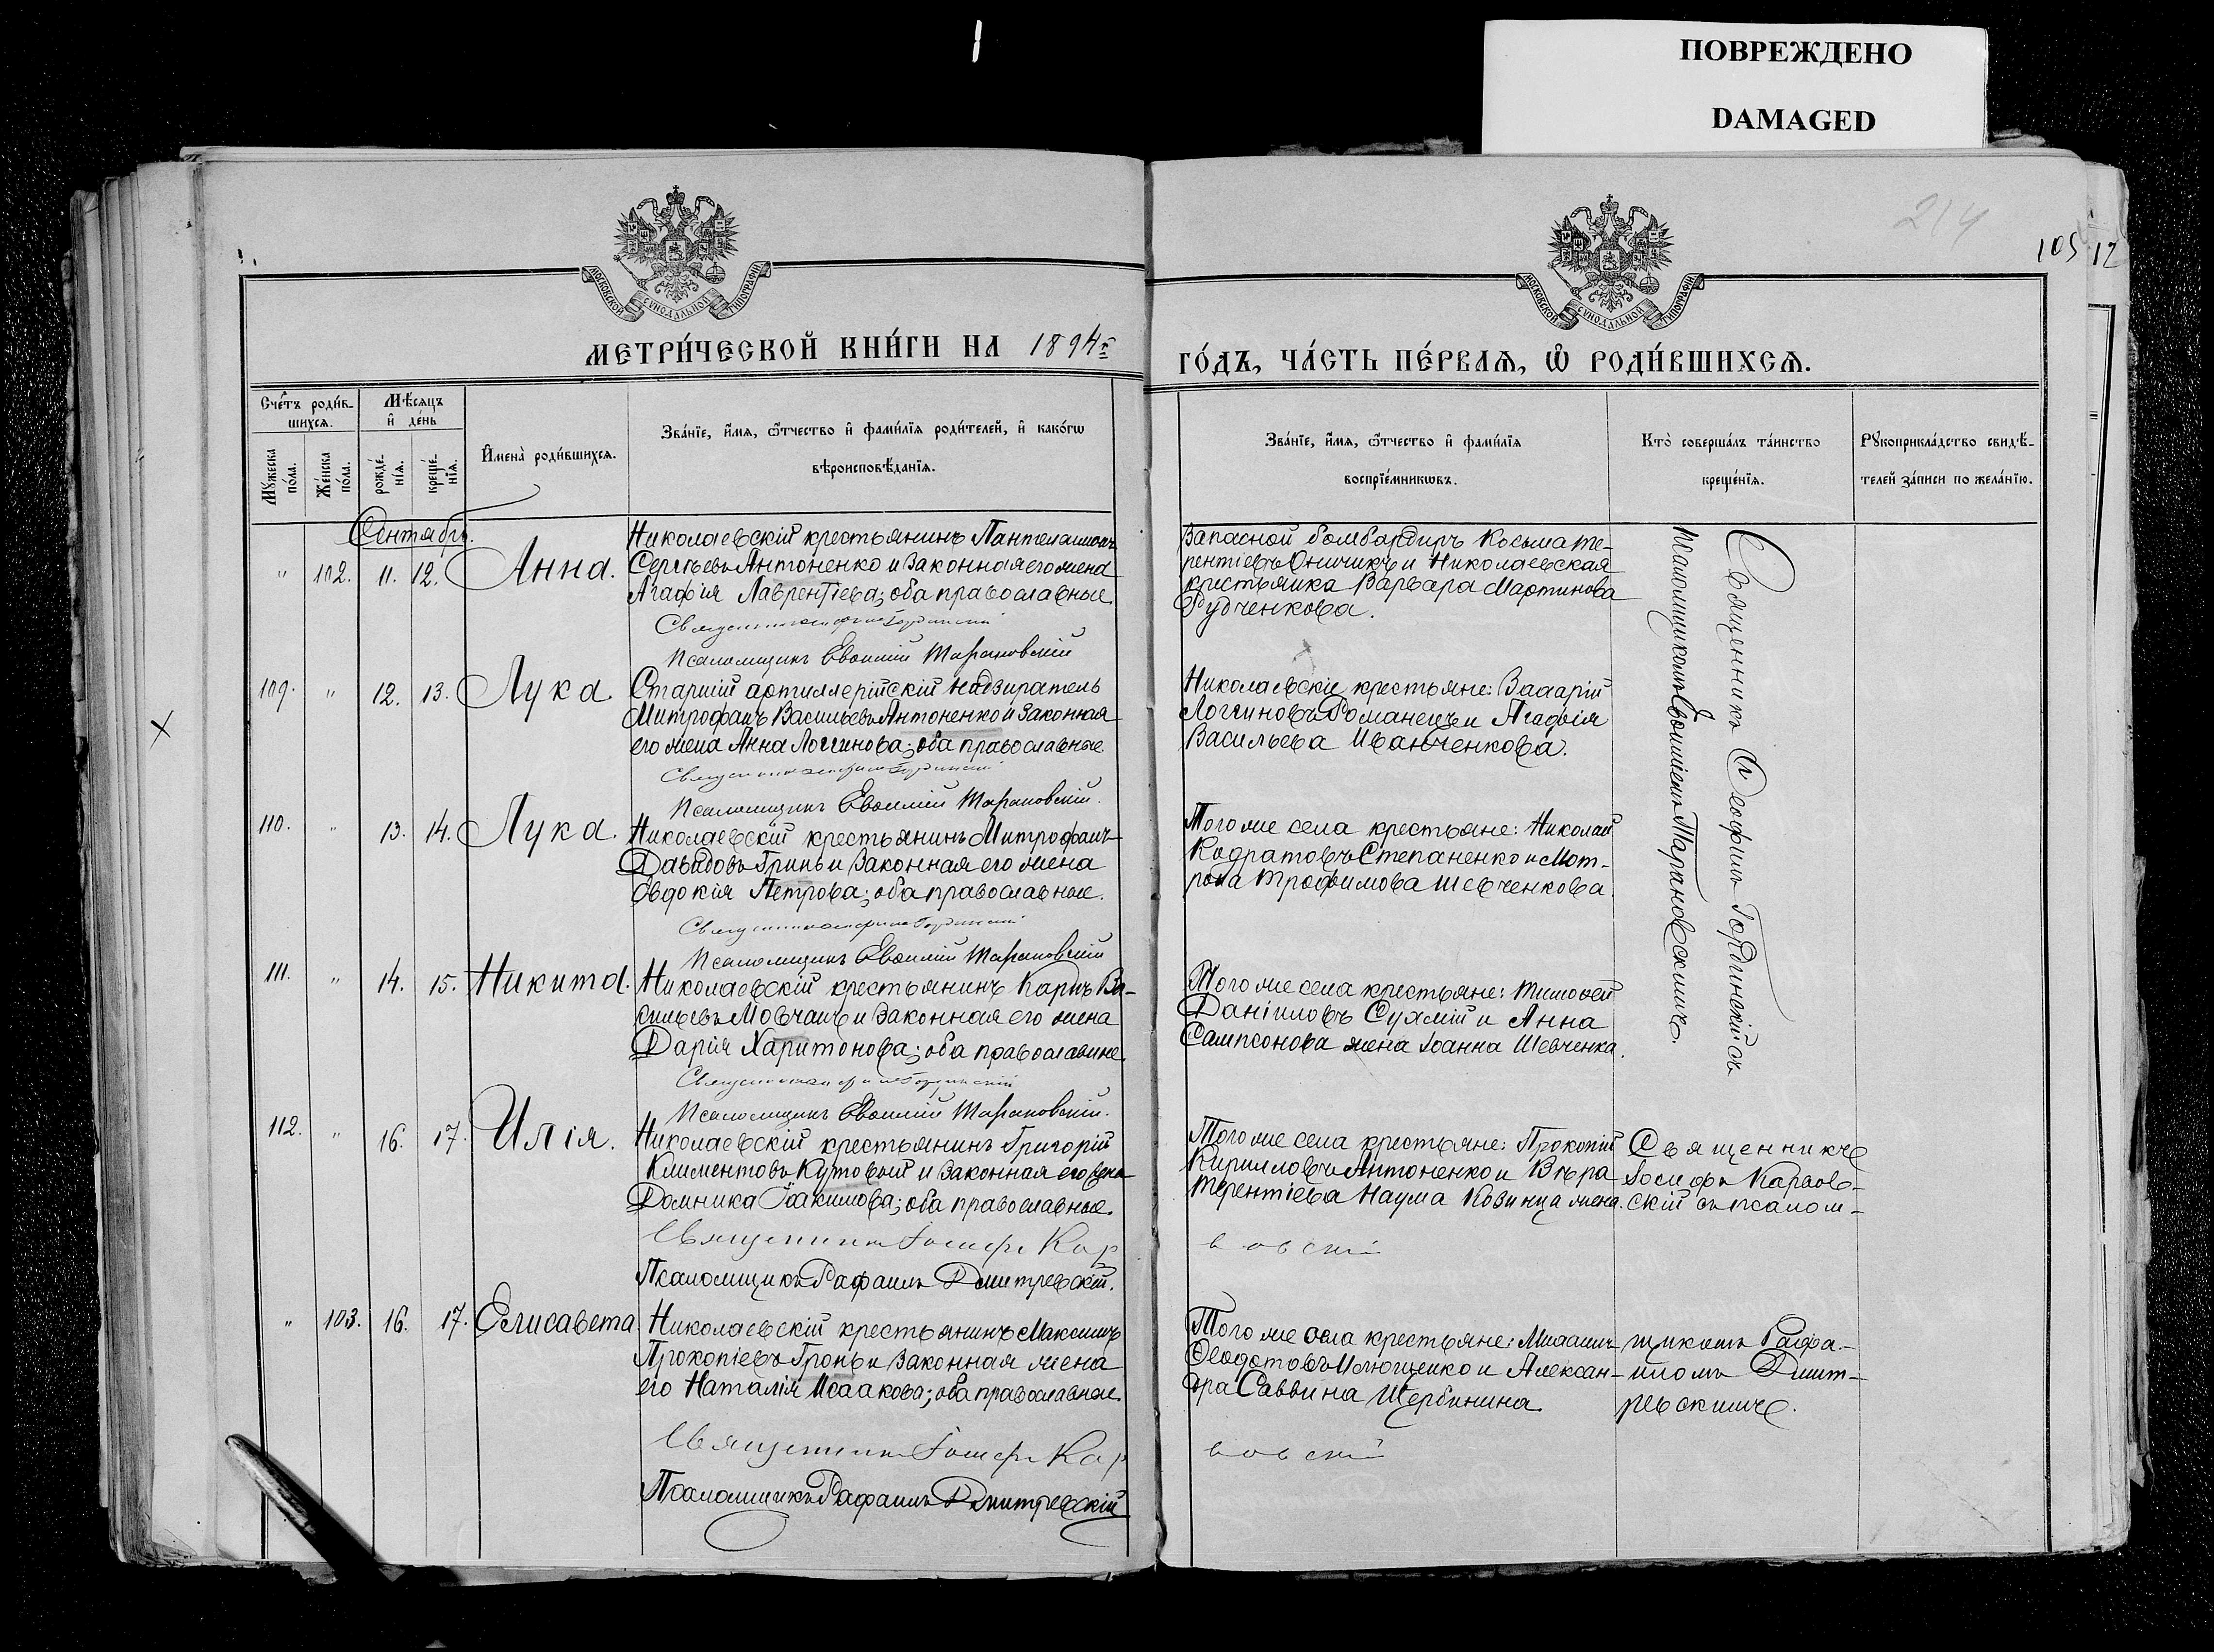 ПОВРЕЖДЕНО
DAMAGED
214
105
12
МОСКОВСКОЙ СѴНОДАЛЬНОЙ ТИПОГРАФІИ
МОСКОВСКОЙ СѴНОДАЛЬНОЙ ТИПОГРАФІИ
МЕТРИ́ЧЕСКОЙ КНИ́ГИ НА 1894 г.
ГО́ДЪ, ЧА́СТЬ ПЕ́РВАѦ, Ѡ҆ РОДИ́ВШИХСѦ.
Сче́тъ роди́в-
шихсѧ.
Мѣ́сѧцъ
и҆ де́нь
Мꙋ́жеска
по́ла.
Же́нска
по́ла.
рожде́-
нїѧ.
креще́-
нїѧ.
И҆мена̀ роди́вшихсѧ.
Зва́нїе, и҆́мѧ, ѻ҆́тчество и҆ фами́лїѧ роди́телей, и҆ како́гѡ
вѣроисповѣ́данїѧ.
Зва́нїе, и҆́мѧ, ѻ҆́тчество и҆ фами́лїѧ
воспрїе́мникѡвъ.
Кто̀ соверша́лъ та́инство
креще́нїѧ.
Рꙋкоприкла́дство свидѣ́-
телей за́писи по жела́нїю.
Сентябрь.
" 102. 11. 12. Анна.
Николаевскій крестьянинъ Пантелеимонъ
Сергѣевъ Антоненко и законная его жена
Агафія Лаврентіева; оба православные.
Священникъ Ѳеофилъ Гординскій
Псаломщикъ Евѳимій Тарановскій
Запасной бомбардиръ Косьма Те-
рентіевъ Оничикъ и Николаевская
крестьянка Варвара Мартинова
Рудченкова.
Священникъ Ѳеофилъ Гординскій съ
псаломщикомъ Евѳиміемъ Тарановскимъ.
109. " 12. 13. Лука.
Старшій артиллерійскій надзиратель
Митрофанъ Васильевъ Антоненко и законная
его жена Анна Логгинова; оба православные
Священникъ Ѳеофилъ Гординскій
Псаломщикъ Евѳимій Тарановскій.
Николаевскіе крестьяне: Захарій
Логгиновъ Романецъ и Агафія
Васильева Иванченкова.
110. " 13. 14. Лука.
Николаевскій крестьянинъ Митрофанъ
Давидовъ Гринь и законная его жена
Евдокія Петрова; оба православные.
Священникъ Ѳеофилъ Гординскій
Псаломщикъ Евѳимій Тарановскій
Того же села крестьяне: Николай
Кодратовъ Степаненко и Мот-
рона Трофимова Шевченкова
111. " 14. 15. Никита.
Николаевскій крестьянинъ Карпъ Ва-
сильевъ Мовчанъ и законная его жена
Дарія Харитонова; оба православные
Священникъ Ѳеофилъ Гординскій
Псаломщикъ Евѳимій Тарановскій.
Того же села крестьяне: Тимоѳей
Даніиловъ Сухмій и Анна
Сампсонова жена Іоанна Шевченка.
112. " 16. 17. Илія.
Николаевскій крестьянинъ Григорій
Климентовъ Кутовый и законная его жена
Домника Іоакимова; оба православные.
Священникъ Іосифъ Кар
повскій
Псаломщикъ Рафаилъ Дмитревскій.
Того же села крестьяне: Прокопій
Кирилловъ Антоненко и Вѣра
Терентіева Наума Ковинца жена.
Священникъ
Іосифъ Карпов-
скій съ псалом-
" 103. 16. 17. Елисавета.
Николаевскій крестьянинъ Максимъ
Прокопіевъ Гронь и законная жена
его Наталія Исаакова; оба православные.
Священникъ Іосифъ Кар
повскій
Псаломщикъ Рафаилъ Дмитревскій
Того же села крестьяне: Михаилъ
Ѳеодотовъ Илющенко и Алексан-
дра Саввина Щербинина.
щикомъ Рафа-
иломъ Дмит-
ревскимъ.